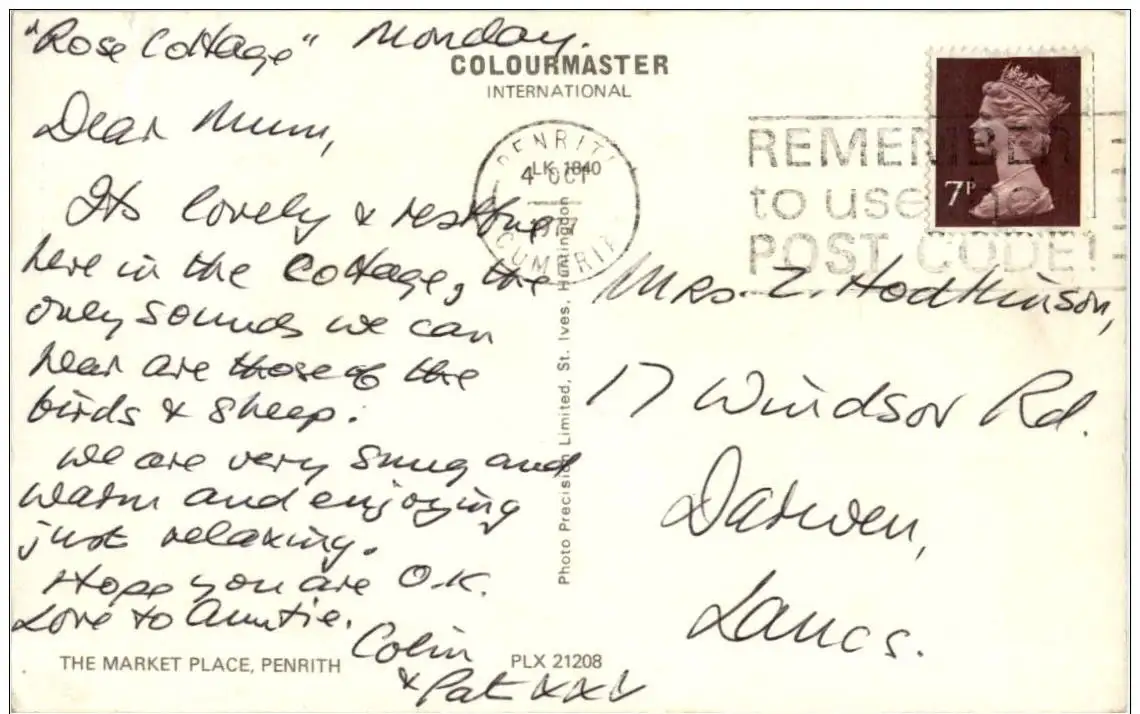 "Rose Cottage" Monday.
COLOURMASTER
INTERNATIONAL
Dear Mum,
Its lovely & restful
here in the Cottage, the
only sounds we can
hear are those of the
birds & sheep.
We are very snug and
warm and enjoying
just relaxing.
Hope you are O.K.
Love to Auntie.
Colin
& Pat XXX
THE MARKET PLACE, PENRITH
PLX 21208
Photo Precision Limited, St. Ives, Huntingdon
PENRITH
LK 1840
4 OCT
1977
CUMBRIA
REMEMBER
to use the
POST CODE!
7P
Mrs. Z. Hodkinson,
17 Windsor Rd.
Darwen,
Lancs.